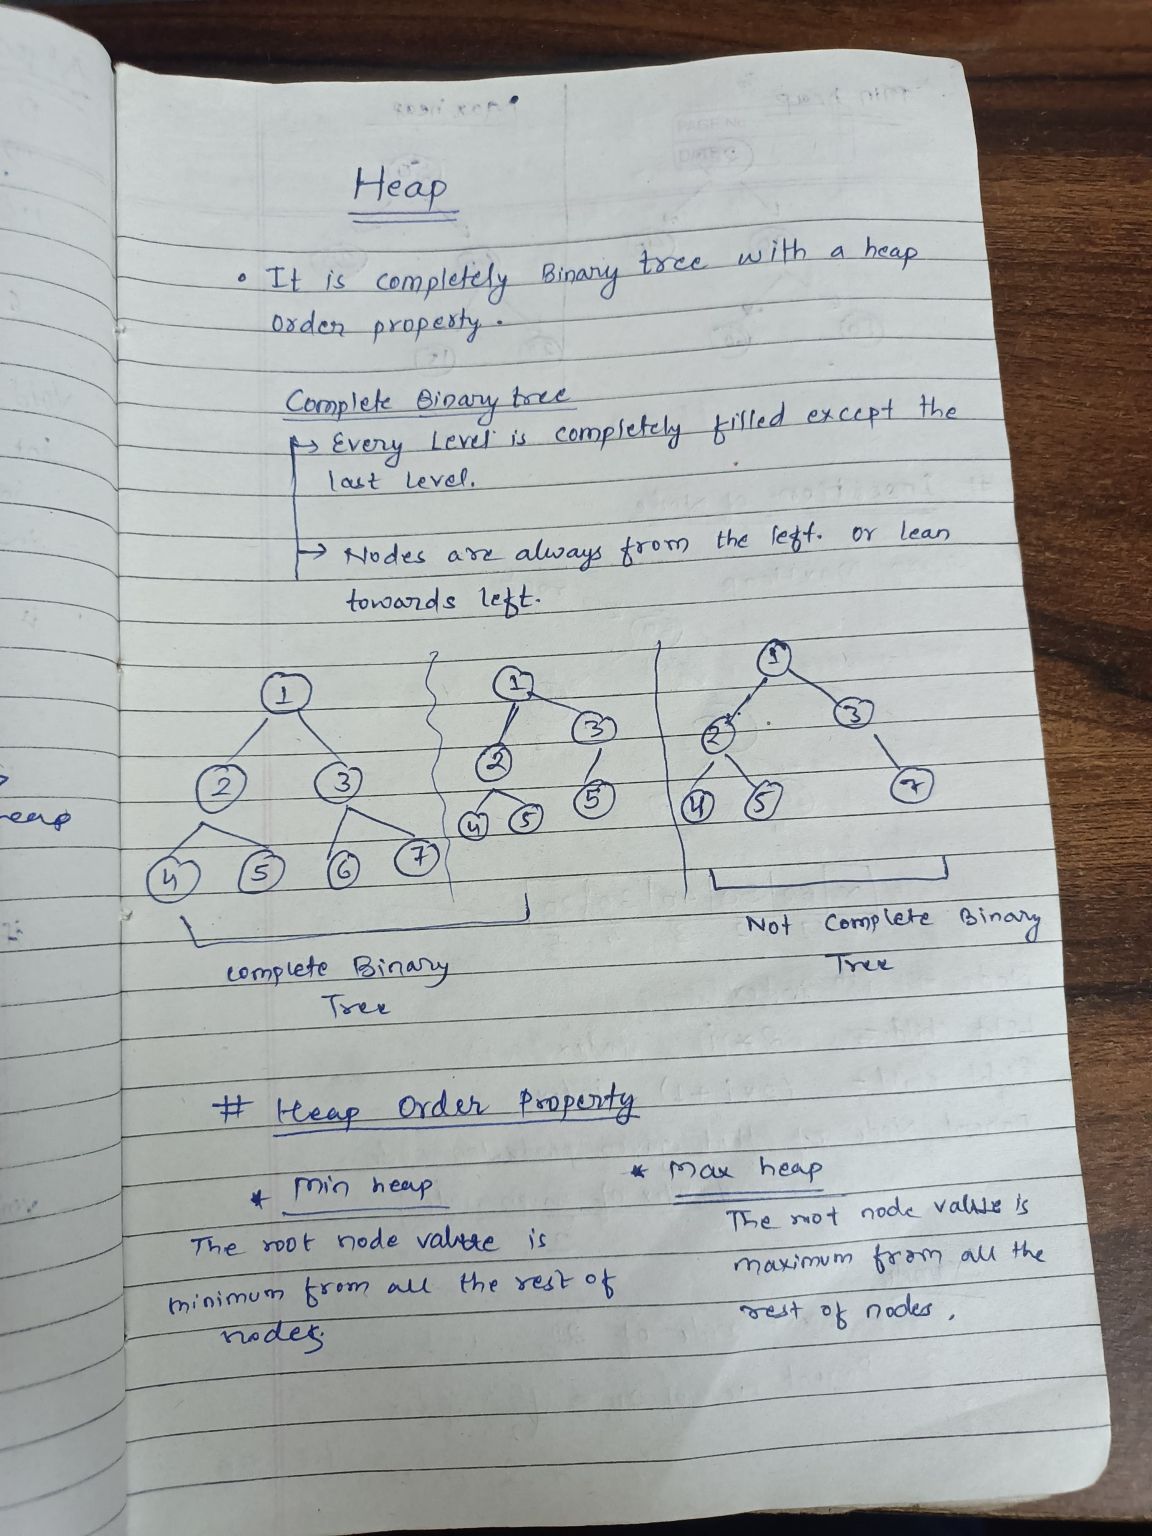 Heap
• It is completely Binary tree with a heap
order property.
Complete Binary tree
→ Every Level is completely filled except the
last Level.
→ Nodes are always from the left. or lean
towards left.
1
2 3
4 5 6 7
1
2 3
4 5 5
1
2 3
4 5 7
complete Binary
Tree
Not Complete Binary
Tree
# Heap Order Property
* Min heap
The root node value is
minimum from all the rest of
nodes.
* Max heap
The root node value is
maximum from all the
rest of nodes.
eap